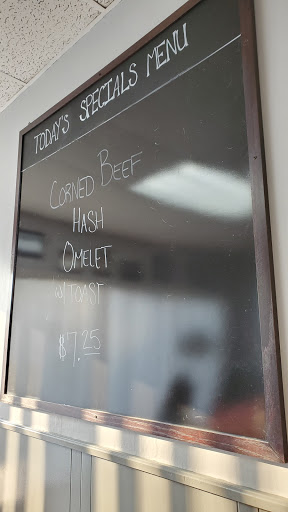 TODAY'S SPECIALS MENU
CORNED BEEF
HASH
OMELET
W/TOAST
$7.25